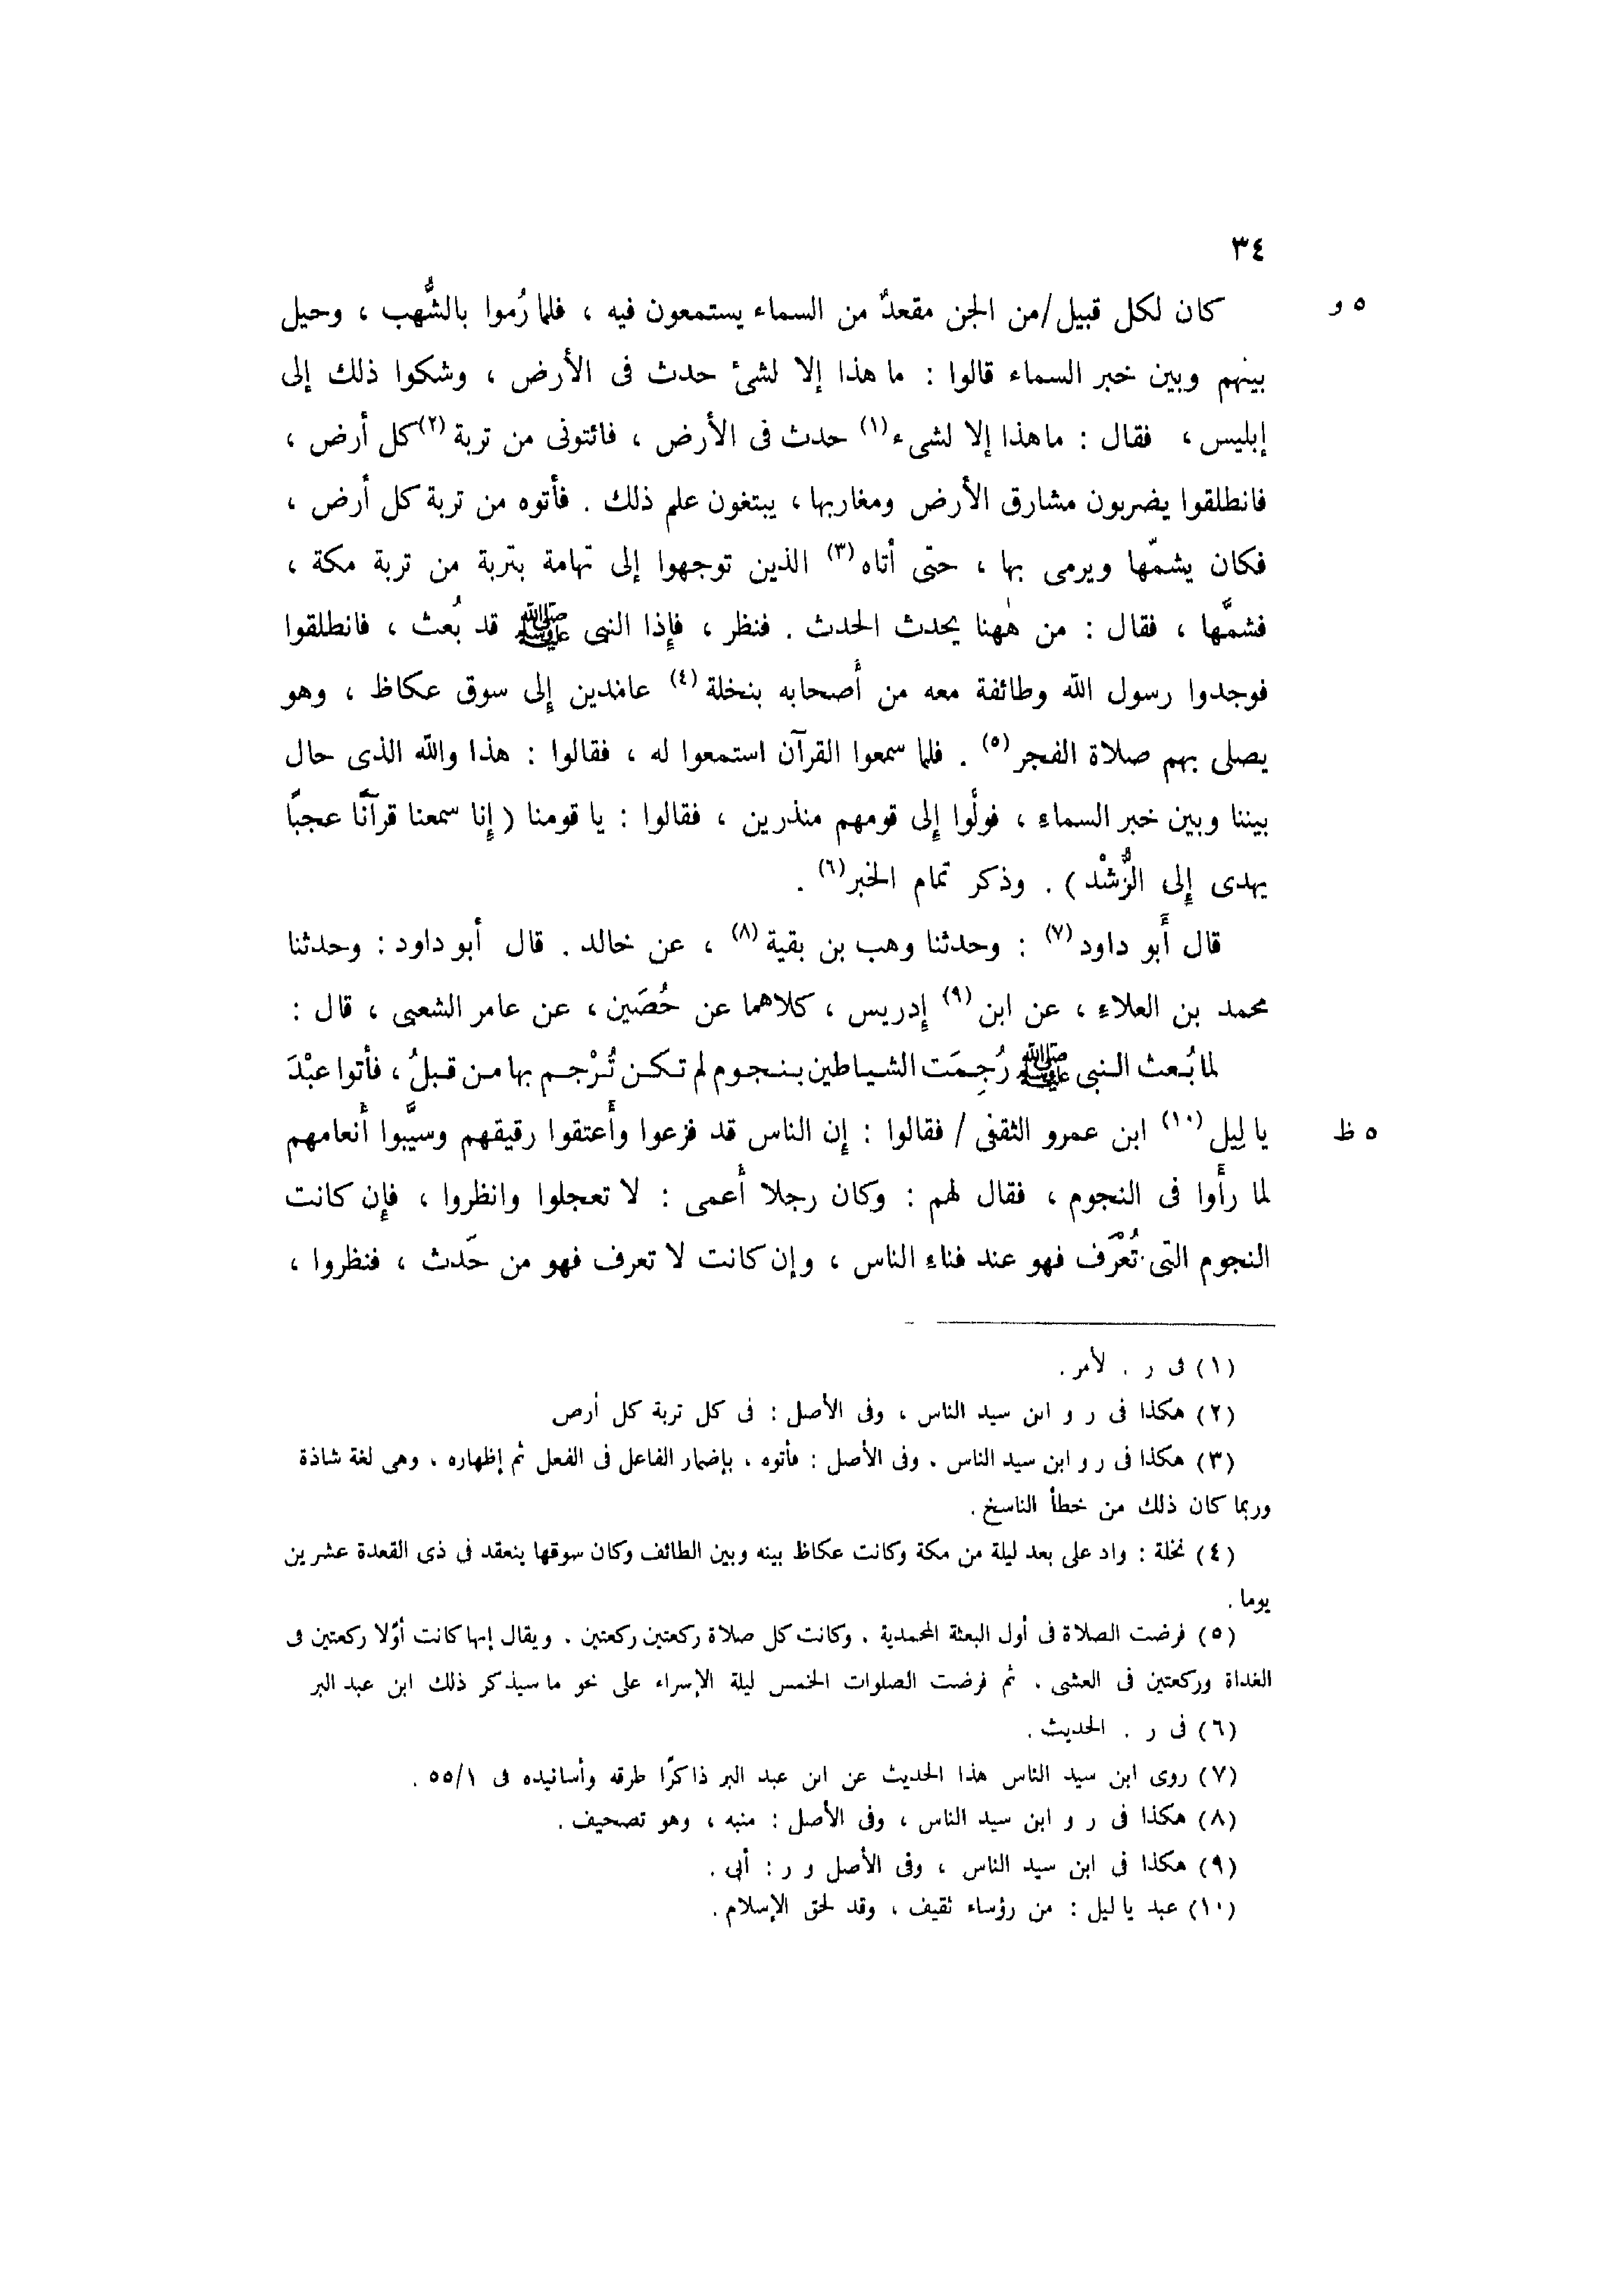 ٣٤
كان لكل قبيل/من الجن مقعدٌ من السماء يستمعون فيه ، فلما رُموا بالشُّهب ، وحيل
٥ و
بينهم وبين خبر السماء قالوا : ما هذا إلا لشئ حدث فى الأرض ، وشكوا ذلك إلى
إبليس ، فقال : ماهذا إلا لشىء (١) حدث فى الأرض ، فائتونى من تربة (٢) كل أرض ،
فانطلقوا يضربون مشارق الأرض ومغاربها ، يبتغون علم ذلك . فأتوه من تربة كل أرض ،
فكان يشمّها ويرمى بها ، حتى أتاه (٣) الذين توجهوا إلى تهامة بتربة من تربة مكة ،
فشمَّها ، فقال : من هٰهنا يحدث الحدث . فنظر ، فإذا النبى ﷺ قد بُعث ، فانطلقوا
فوجدوا رسول الله وطائفة معه من أصحابه بنخلة (٤) عامدين إلى سوق عكاظ ، وهو
يصلى بهم صلاة الفجر (٥) . فلما سمعوا القرآن استمعوا له ، فقالوا : هذا والله الذى حال
بيننا وبين خبر السماء ، فولَّوا إلى قومهم منذرين ، فقالوا : يا قومنا ( إنا سمعنا قرآنًا عجبًا
يهدى إلى الرُّشْد ) . وذكر تمام الخبر (٦) .
قال أبو داود (٧) : وحدثنا وهب بن بقية (٨) ، عن خالد . قال أبو داود : وحدثنا
محمد بن العلاء ، عن ابن (٩) إدريس ، كلاهما عن حُصَين ، عن عامر الشعبى ، قال :
لما بُعث النبى ﷺ رُجِمَت الشياطين بنجوم لم تكن تُرْجم بها من قبلُ ، فأتوا عبْدَ
يا لِيل (١٠) ابن عمرو الثقفى / فقالوا : إن الناس قد فزعوا وأعتقوا رقيقهم وسيَّبوا أنعامهم
٥ ظ
لما رأوا فى النجوم ، فقال لهم : وكان رجلا أعمى : لا تعجلوا وانظروا ، فإن كانت
النجوم التى تُعْرَف فهو عند فناء الناس ، وإن كانت لا تعرف فهو من حَدث ، فنظروا ،
(١) فى ر . لأمر .
(٢) هكذا فى ر و ابن سيد الناس ، وفى الأصل : فى كل تربة كل أرض
(٣) هكذا فى ر و ابن سيد الناس . وفى الأصل : فأتوه ، بإضمار الفاعل فى الفعل ثم إظهاره ، وهى لغة شاذة
وربما كان ذلك من خطأ الناسخ .
(٤) نخلة : واد على بعد ليلة من مكة وكانت عكاظ بينه وبين الطائف وكان سوقها ينعقد فى ذى القعدة عشرين
يوما .
(٥) فرضت الصلاة فى أول البعثة المحمدية . وكانت كل صلاة ركعتين ركعتين . ويقال إنها كانت أوّلا ركعتين فى
الغداة وركعتين فى العشى . ثم فرضت الصلوات الخمس ليلة الإسراء على نحو ما سيذكر ذلك ابن عبد البر
(٦) فى ر . الحديث .
(٧) روى ابن سيد الناس هذا الحديث عن ابن عبد البر ذاكرًا طرقه وأسانيده فى ٥٥/١ .
(٨) هكذا فى ر و ابن سيد الناس ، وفى الأصل : منبه ، وهو تصحيف .
(٩) هكذا فى ابن سيد الناس ، وفى الأصل و ر : أبى .
(١٠) عبد يا ليل : من رؤساء ثقيف ، وقد لحق الإسلام .